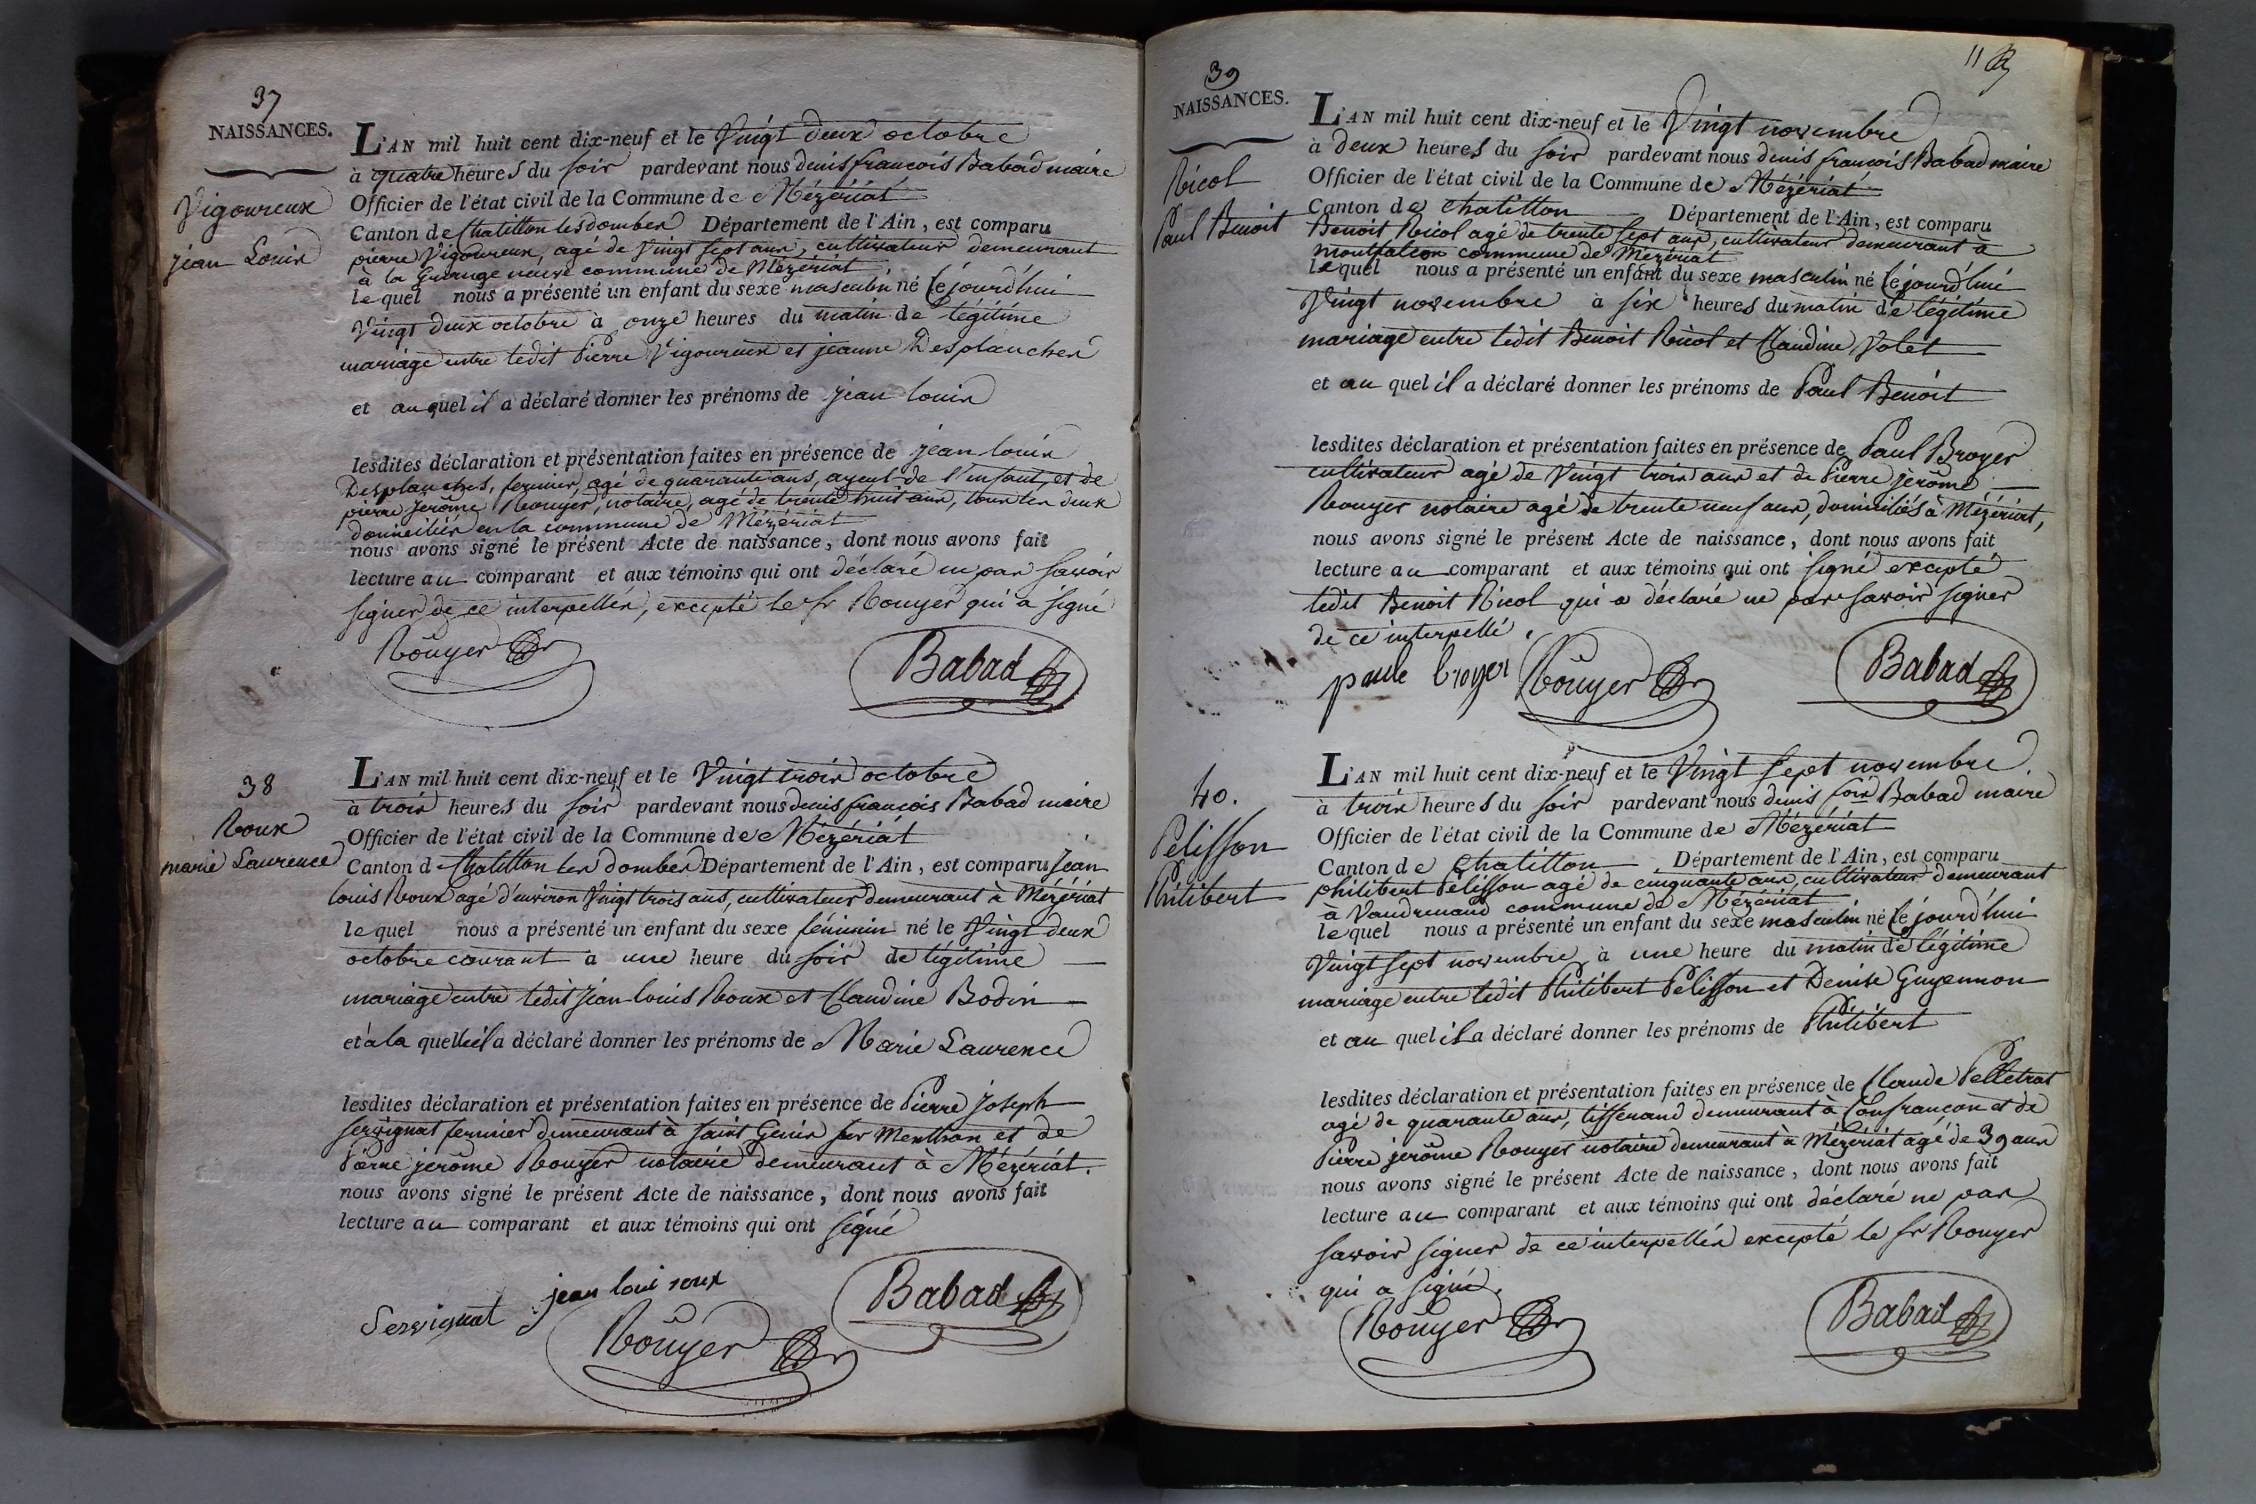 37
NAISSANCES.
Vigoureux
jean Louis
L'AN mil huit cent dix-neuf et le Vingt deux octobre
à quatre heures du soir pardevant nous denis françois Babad maire
Officier de l'état civil de la Commune de Mézériat
Canton de Chatillon les dombes Département de l'Ain, est comparu
pierre Vigoureux, agé de Vingt sept ans, cultivateur demeurant
à la Grange neuve commune de Mézériat
lequel nous a présenté un enfant du sexe masculin né Cejourd'hui
Vingt deux octobre à onze heures du matin de légitime
mariage entre ledit Pierre Vigoureux et jeanne Desplanches
et auquel il a déclaré donner les prénoms de jean louis
lesdites déclaration et présentation faites en présence de jean louis
Desplanches, fermier, agé de quarante ans, ayeul de l'enfant, et de
pierre jerôme Rouyer, notaire, agé de trente huit ans, tous les deux
domiciliés en la commune de Mézériat
nous avons signé le présent Acte de naissance, dont nous avons fait
lecture au comparant et aux témoins qui ont déclaré ne pas savoir
signer de ce interpellés, excepté le sr Rouyer qui a signé
Rouyer
Babad
38
Roux
marie Laurence
L'AN mil huit cent dix-neuf et le Vingt trois octobre
à trois heures du soir pardevant nous denis françois Babad maire
Officier de l'état civil de la Commune de Mézériat
Canton de Chatillon les dombes Département de l'Ain, est comparu Jean
louis Roux agé d'environ Vingt trois ans, cultivateur demeurant à Mézériat
lequel nous a présenté un enfant du sexe féminin né le Vingt deux
octobre courant à une heure du soir de légitime
mariage entre ledit Jean louis Roux et Claudine Bodin
et à la quelle il a déclaré donner les prénoms de Marie Laurence
lesdites déclaration et présentation faites en présence de Pierre joseph
servignat fermier demeurant à saint Genis sur Menthon et de
Pierre jerôme Rouyer notaire demeurant à Mézériat.
nous avons signé le présent Acte de naissance, dont nous avons fait
lecture au comparant et aux témoins qui ont signé
Servignat
jean loui roux
Rouyer
Babad
11
39
NAISSANCES.
Nicol
Paul Benoit
L'AN mil huit cent dix-neuf et le Vingt novembre
à deux heures du soir pardevant nous denis françois Babad maire
Officier de l'état civil de la Commune de Mézériat
Canton de Chatillon Département de l'Ain, est comparu
Benoit Nicol agé de trente sept ans, cultivateur demeurant à
montfalcon commune de Mézériat
lequel nous a présenté un enfant du sexe masculin né Cejourd'hui
Vingt novembre à six heures du matin de légitime
mariage entre ledit Benoit Nicol et Claudine Volet
et au quel il a déclaré donner les prénoms de Paul Benoit
lesdites déclaration et présentation faites en présence de Paul Broyer
cultivateur agé de Vingt trois ans et de Pierre jerôme
Rouyer notaire agé de trente neuf ans, domiciliés à Mézériat,
nous avons signé le présent Acte de naissance, dont nous avons fait
lecture au comparant et aux témoins qui ont signé excepté
ledit Benoit Nicol qui a déclaré ne pas savoir signer
de ce interpellé.
paule broyer
Rouyer
Babad
40.
Pelisson
Philibert
L'AN mil huit cent dix-neuf et le Vingt sept novembre
à trois heures du soir pardevant nous denis fois Babad maire
Officier de l'état civil de la Commune de Mézériat
Canton de Chatillon Département de l'Ain, est comparu
philibert Pelisson agé de cinquante ans, cultivateur demeurant
à Vaudrenaud commune de Mézériat
lequel nous a présenté un enfant du sexe masculin né Cejourd'hui
Vingt sept novembre à une heure du matin de légitime
mariage entre ledit Philibert Pelisson et Denise Guyennon
et au quel il a déclaré donner les prénoms de Philibert
lesdites déclaration et présentation faites en présence de Claude Pelletrat
agé de quarante ans, tisserand demeurant à Confrançon et de
Pierre jerôme Rouyer notaire demeurant à Mézériat agé de 39 ans
nous avons signé le présent Acte de naissance, dont nous avons fait
lecture au comparant et aux témoins qui ont déclaré ne pas
savoir signer de ce interpellés excepté le sr Rouyer
qui a signé.
Rouyer
Babad